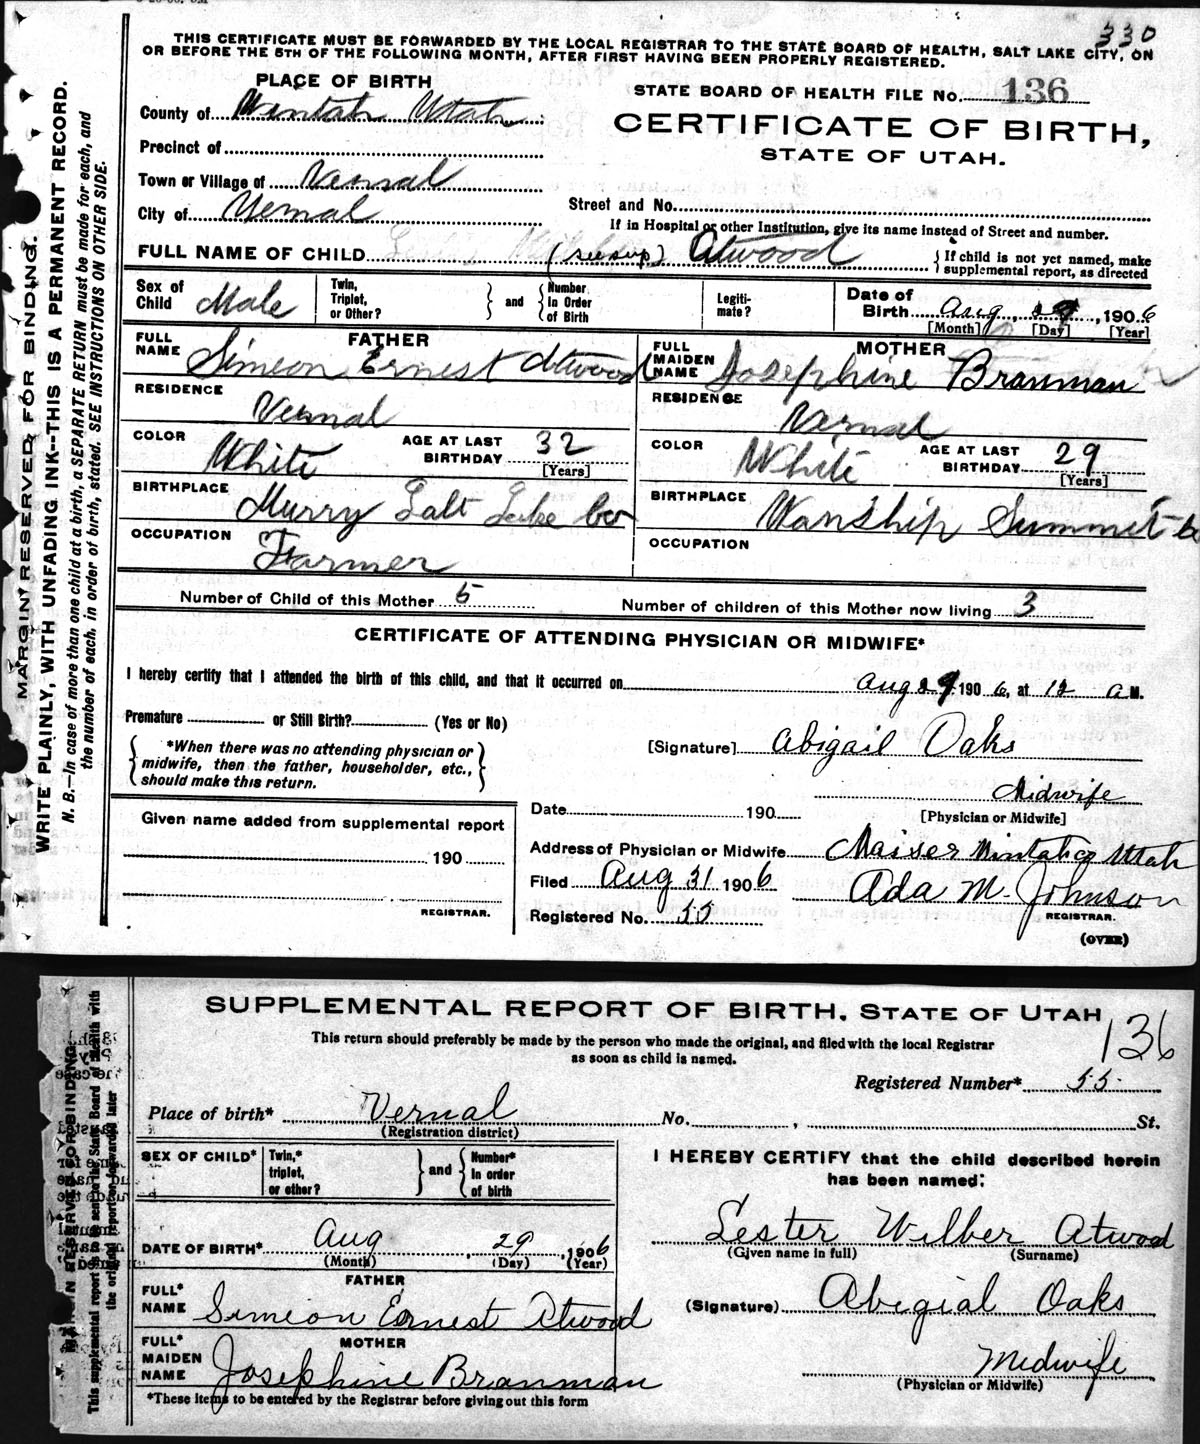 330
THIS CERTIFICATE MUST BE FORWARDED BY THE LOCAL REGISTRAR TO THE STATE BOARD OF HEALTH, SALT LAKE CITY, ON
OR BEFORE THE 5TH OF THE FOLLOWING MONTH, AFTER FIRST HAVING BEEN PROPERLY REGISTERED.
PLACE OF BIRTH
STATE BOARD OF HEALTH FILE No. 136
County of Uintah Utah
CERTIFICATE OF BIRTH,
STATE OF UTAH.
Precinct of
Town or Village of Vernal
City of Vernal
Street and No.
If in Hospital or other Institution, give its name instead of Street and number.
FULL NAME OF CHILD (see sup) Atwood
{If child is not yet named, make supplemental report, as directed
Sex of Child Male
Twin, Triplet, or Other? } and { Number In Order of Birth
Legiti-mate?
Date of Birth Aug, 29, 1906
[Month] [Day] [Year]
FATHER
FULL NAME Simeon Ernest Atwood
MOTHER
FULL MAIDEN NAME Josephine Branman
RESIDENCE Vernal
RESIDENCE Vernal
COLOR White AGE AT LAST BIRTHDAY 32 [Years]
COLOR White AGE AT LAST BIRTHDAY 29 [Years]
BIRTHPLACE Murry Salt Lake co
BIRTHPLACE Wanship Summit co
OCCUPATION Farmer
OCCUPATION
Number of Child of this Mother 5
Number of children of this Mother now living 3
CERTIFICATE OF ATTENDING PHYSICIAN OR MIDWIFE*
I hereby certify that I attended the birth of this child, and that it occurred on Aug 29, 1906, at 12 a M.
Premature or Still Birth? (Yes or No)
{ *When there was no attending physician or midwife, then the father, householder, etc., should make this return. }
[Signature] Abigail Oaks
Midwife
[Physician or Midwife]
Date 190
Given name added from supplemental report
190
REGISTRAR.
Address of Physician or Midwife Maiser Uintah co Utah
Filed Aug 31 1906
Ada M. Johnson
REGISTRAR.
Registered No. 55
(OVER)
MARGIN RESERVED FOR BINDING.
WRITE PLAINLY, WITH UNFADING INK--THIS IS A PERMANENT RECORD.
N. B.—In case of more than one child at a birth, a SEPARATE RETURN must be made for each, and
the number of each, in order of birth, stated. SEE INSTRUCTIONS ON OTHER SIDE.
SUPPLEMENTAL REPORT OF BIRTH, STATE OF UTAH
136
This return should preferably be made by the person who made the original, and filed with the local Registrar
as soon as child is named.
Registered Number* 55
Place of birth* Vernal No. , St.
(Registration district)
SEX OF CHILD*
Twin,* triplet, or other? } and { Number* In order of birth
I HEREBY CERTIFY that the child described herein
has been named:
Lester Wilber Atwood
(Given name in full) (Surname)
DATE OF BIRTH* Aug, 29, 1906
(Month) (Day) (Year)
FATHER
FULL* NAME Simeion Ernest Atwood
(Signature) Abegial Oaks
MOTHER
FULL* MAIDEN NAME Josephine Branman
Midwife
(Physician or Midwife)
*These items to be entered by the Registrar before giving out this form